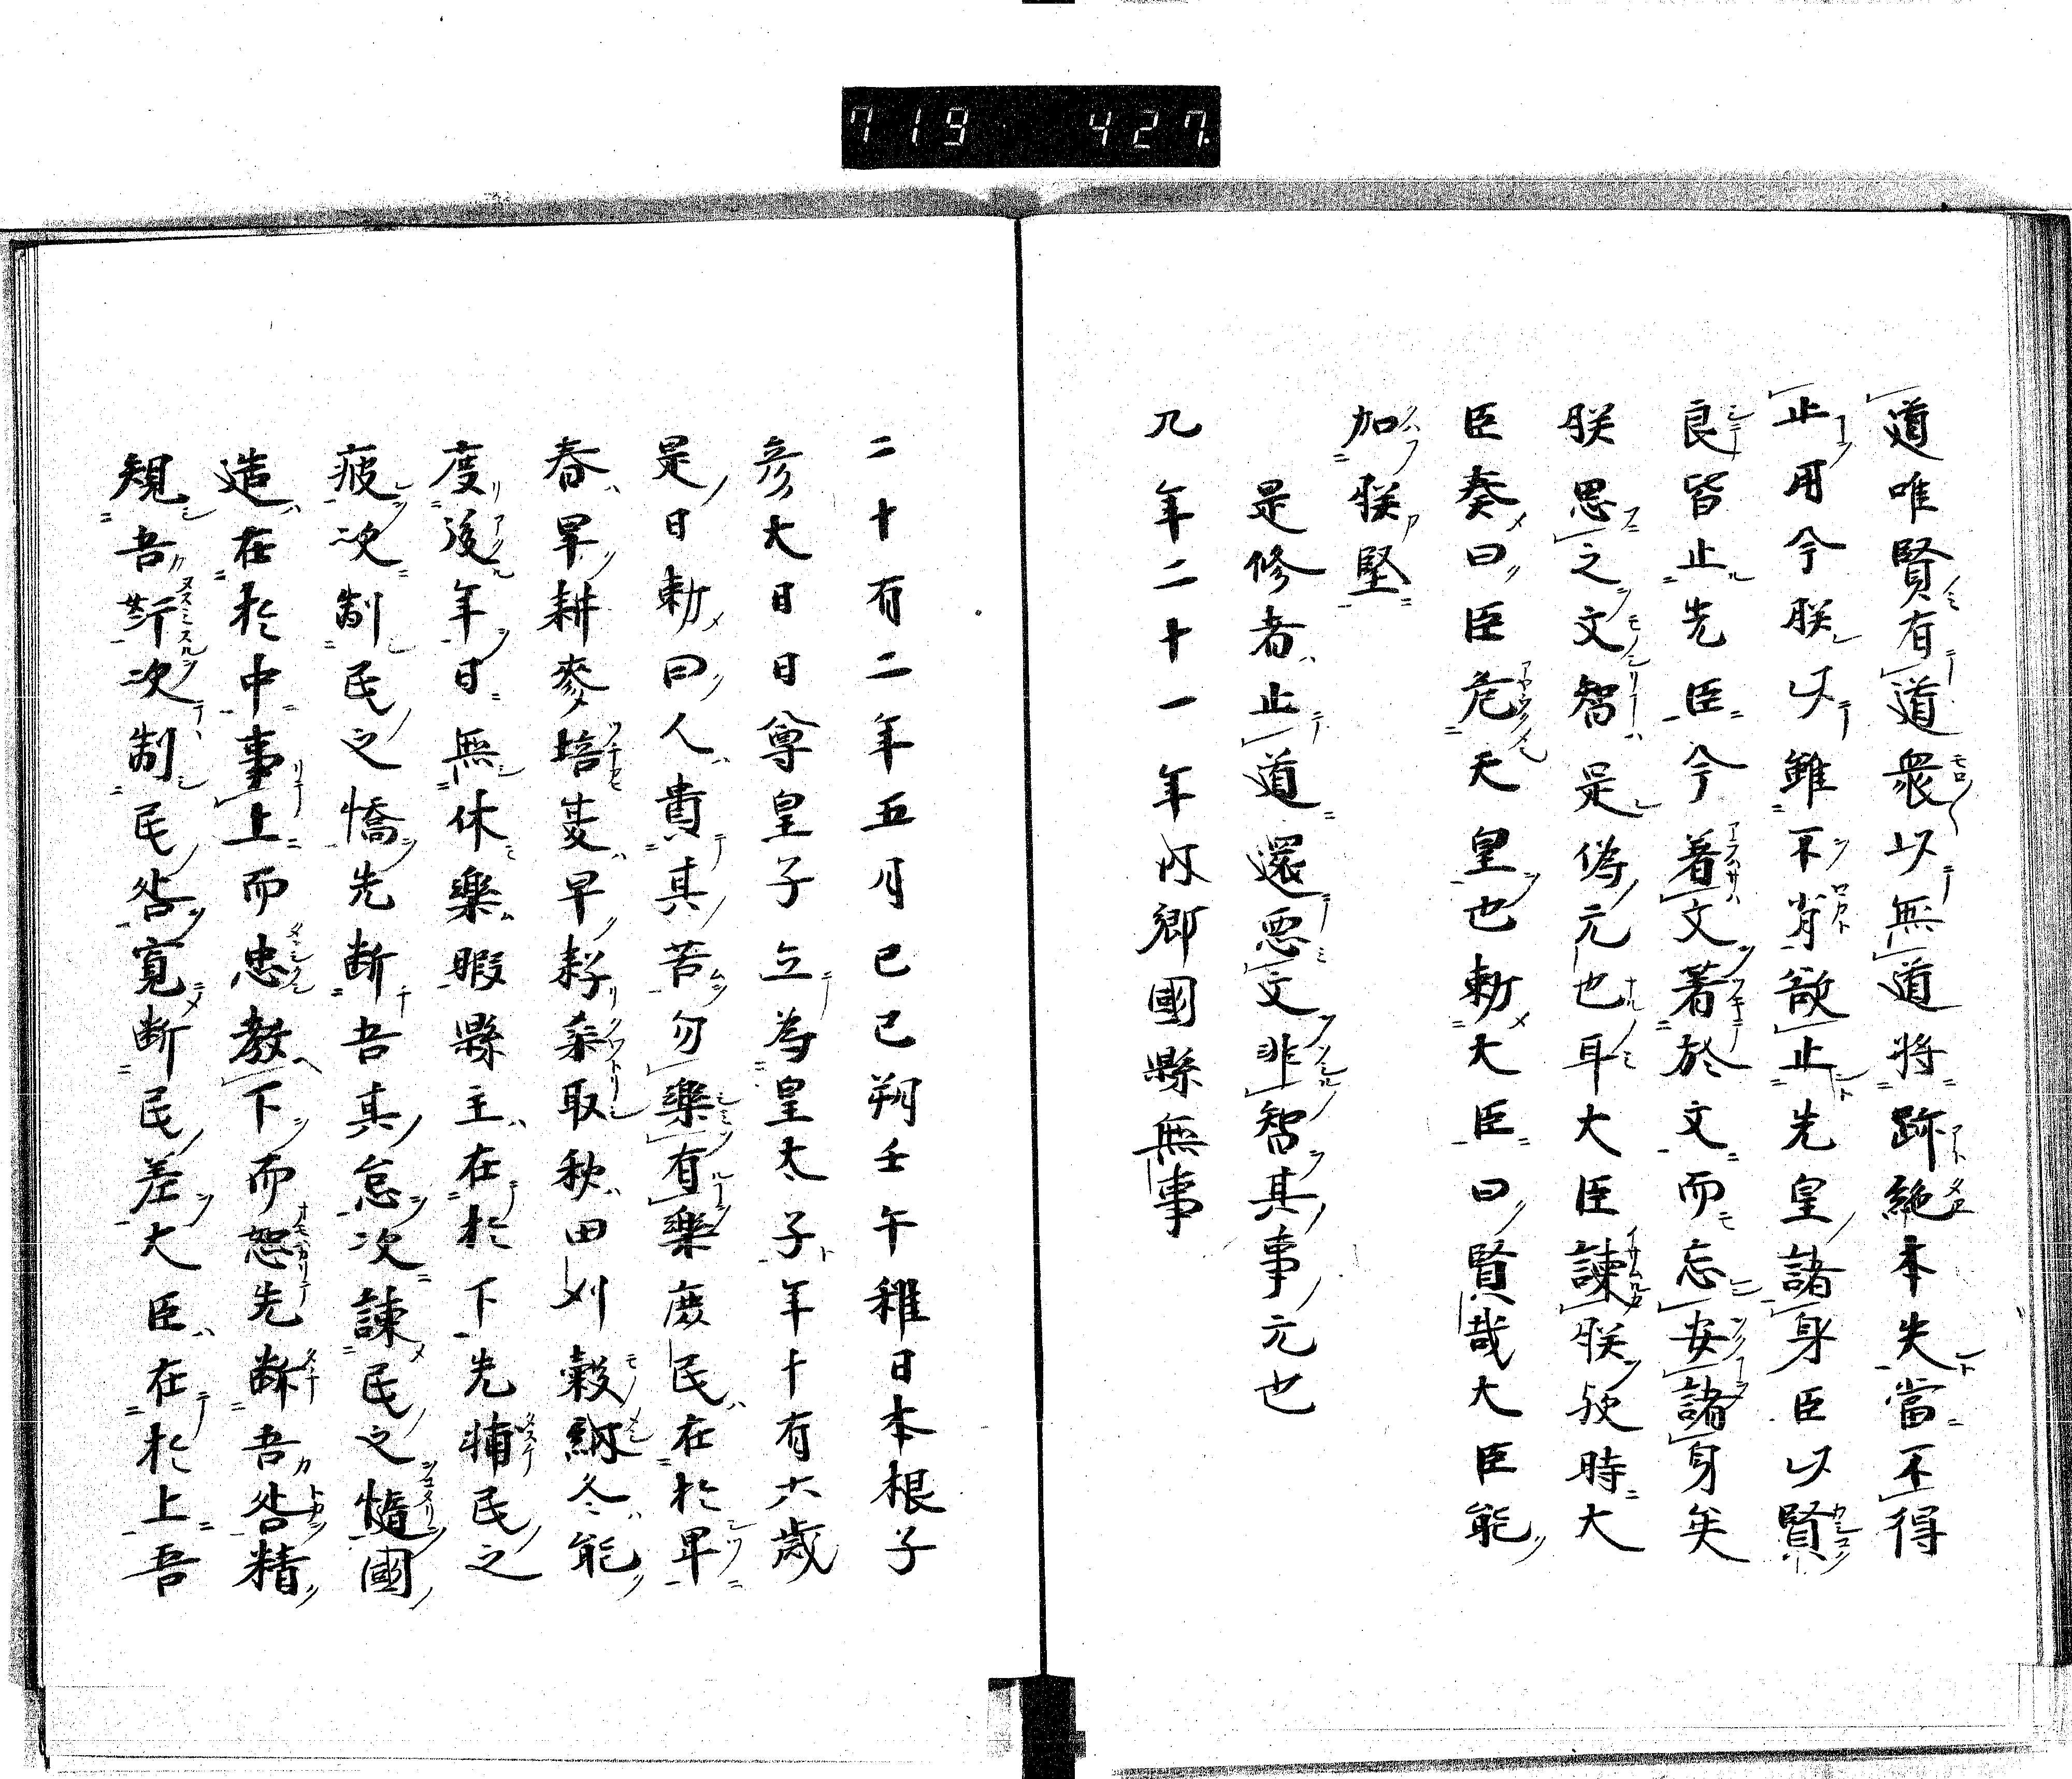 719 427
道唯賢有道衆以無道將跡絶本失當不得
止用今朕以雖不背欲止先皇諸身臣以賢
良皆止先臣今著文著於文而忘安諸身矣
朕思之文智是偽元也耳大臣諫朕於時大
臣奏曰臣危天皇也勅大臣曰賢哉大臣能
加朕堅
是修者止道還惡文非智其事元也
凡年二十一年內鄉國縣無事
二十有二年五月己巳朔壬午稚日本根子
彦大日日尊皇子立為皇太子年十有六歲
是日勅曰人貴其苦勿樂有樂庶民在於早
春旱耕麥培麦早耔桒取秋田刈穀納冬能
度後年日無休樂暇縣主在於下先補民之
疲次制民之憍先断吾其怠次諫民之惰國
造在於中事上而忠教下而恕先断吾咎精
規吾次制民咎寛断民差大臣在於上吾